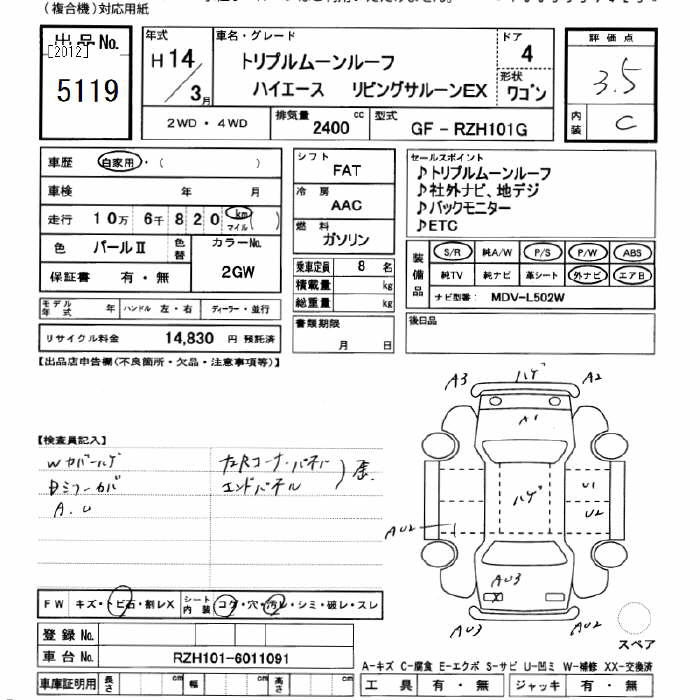 (複合機)対応用紙
出品No.
[2012]
5119
年式
H14/3月
車名・グレード
トリプルムーンルーフ
ハイエース リビングサルーンEX
ドア
4
形状
ワゴン
評価点
3.5
内装
C
2WD・4WD
排気量 2400 cc
型式 GF-RZH101G
車歴 自家用・( )
車検 年 月
走行 10万 6千 820 km マイル ( )
色 パールⅡ 色替
カラーNo. 2GW
保証書 有・無
モデル年式 年 ハンドル 左・右 ディーラー・並行
リサイクル料金 14,830 円 預託済
シフト
FAT
冷房
AAC
燃料
ガソリン
乗車定員 8 名
積載量 kg
総重量 kg
書類期限
月 日
セールスポイント
♪トリプルムーンルーフ
♪社外ナビ、地デジ
♪バックモニター
♪ETC
装備品
S/R 純A/W P/S P/W ABS
純TV 純ナビ 革シート 外ナビ エアB
ナビ型番: MDV-L502W
後日品
【出品店申告欄(不良箇所・欠品・注意事項等)】
【検査員記入】
A.U
エンドパネル
A3 ハゲ A2
A1
ハゲ
U1
U2
AU2
AU3
X
AU3
AU2
スペア
FW キズ・トビ石・割レX シート内装 コゲ・穴・汚レ・シミ・破レ・スレ
登録No.
車台No. RZH101-6011091
車庫証明用 長さ cm 幅 cm 高さ cm
A-キズ C-腐食 E-エクボ S-サビ U-凹ミ W-補修 XX-交換済
工具 有・無 ジャッキ 有・無